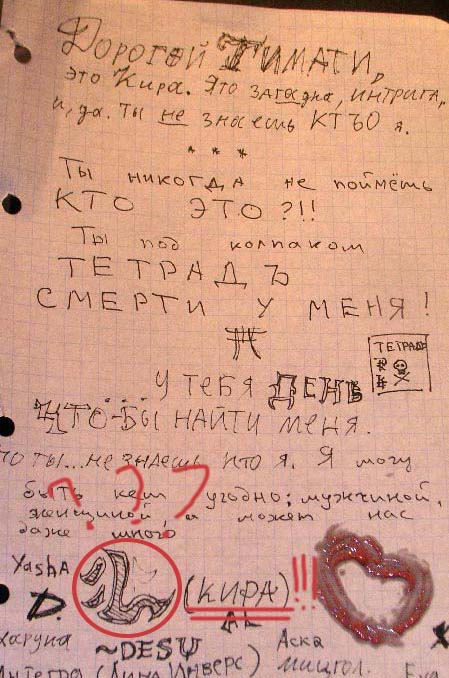 Дорогой Тимати,
это Кира. Это загадка, интрига,
и, да. Ты не знаешь КТЪО я.
* * *
Ты никогда не поймёшь
КТО ЭТО?!!
Ты под колпаком
ТЕТРАДЪ
СМЕРТИ У МЕНЯ!
ТЕТРАДЬ
У тебя ДЕНЬ
ЧТО-БЫ НАЙТИ меня.
но ты... не знаешь кто я. Я могу
???
быть кем угодно: мужчиной,
женщиной, а может нас
даже много
YashA
L (КИРА)!!!
D.
AL
Харуна ~DESU Аска
Интегра (Лина Инверс) мицгол.